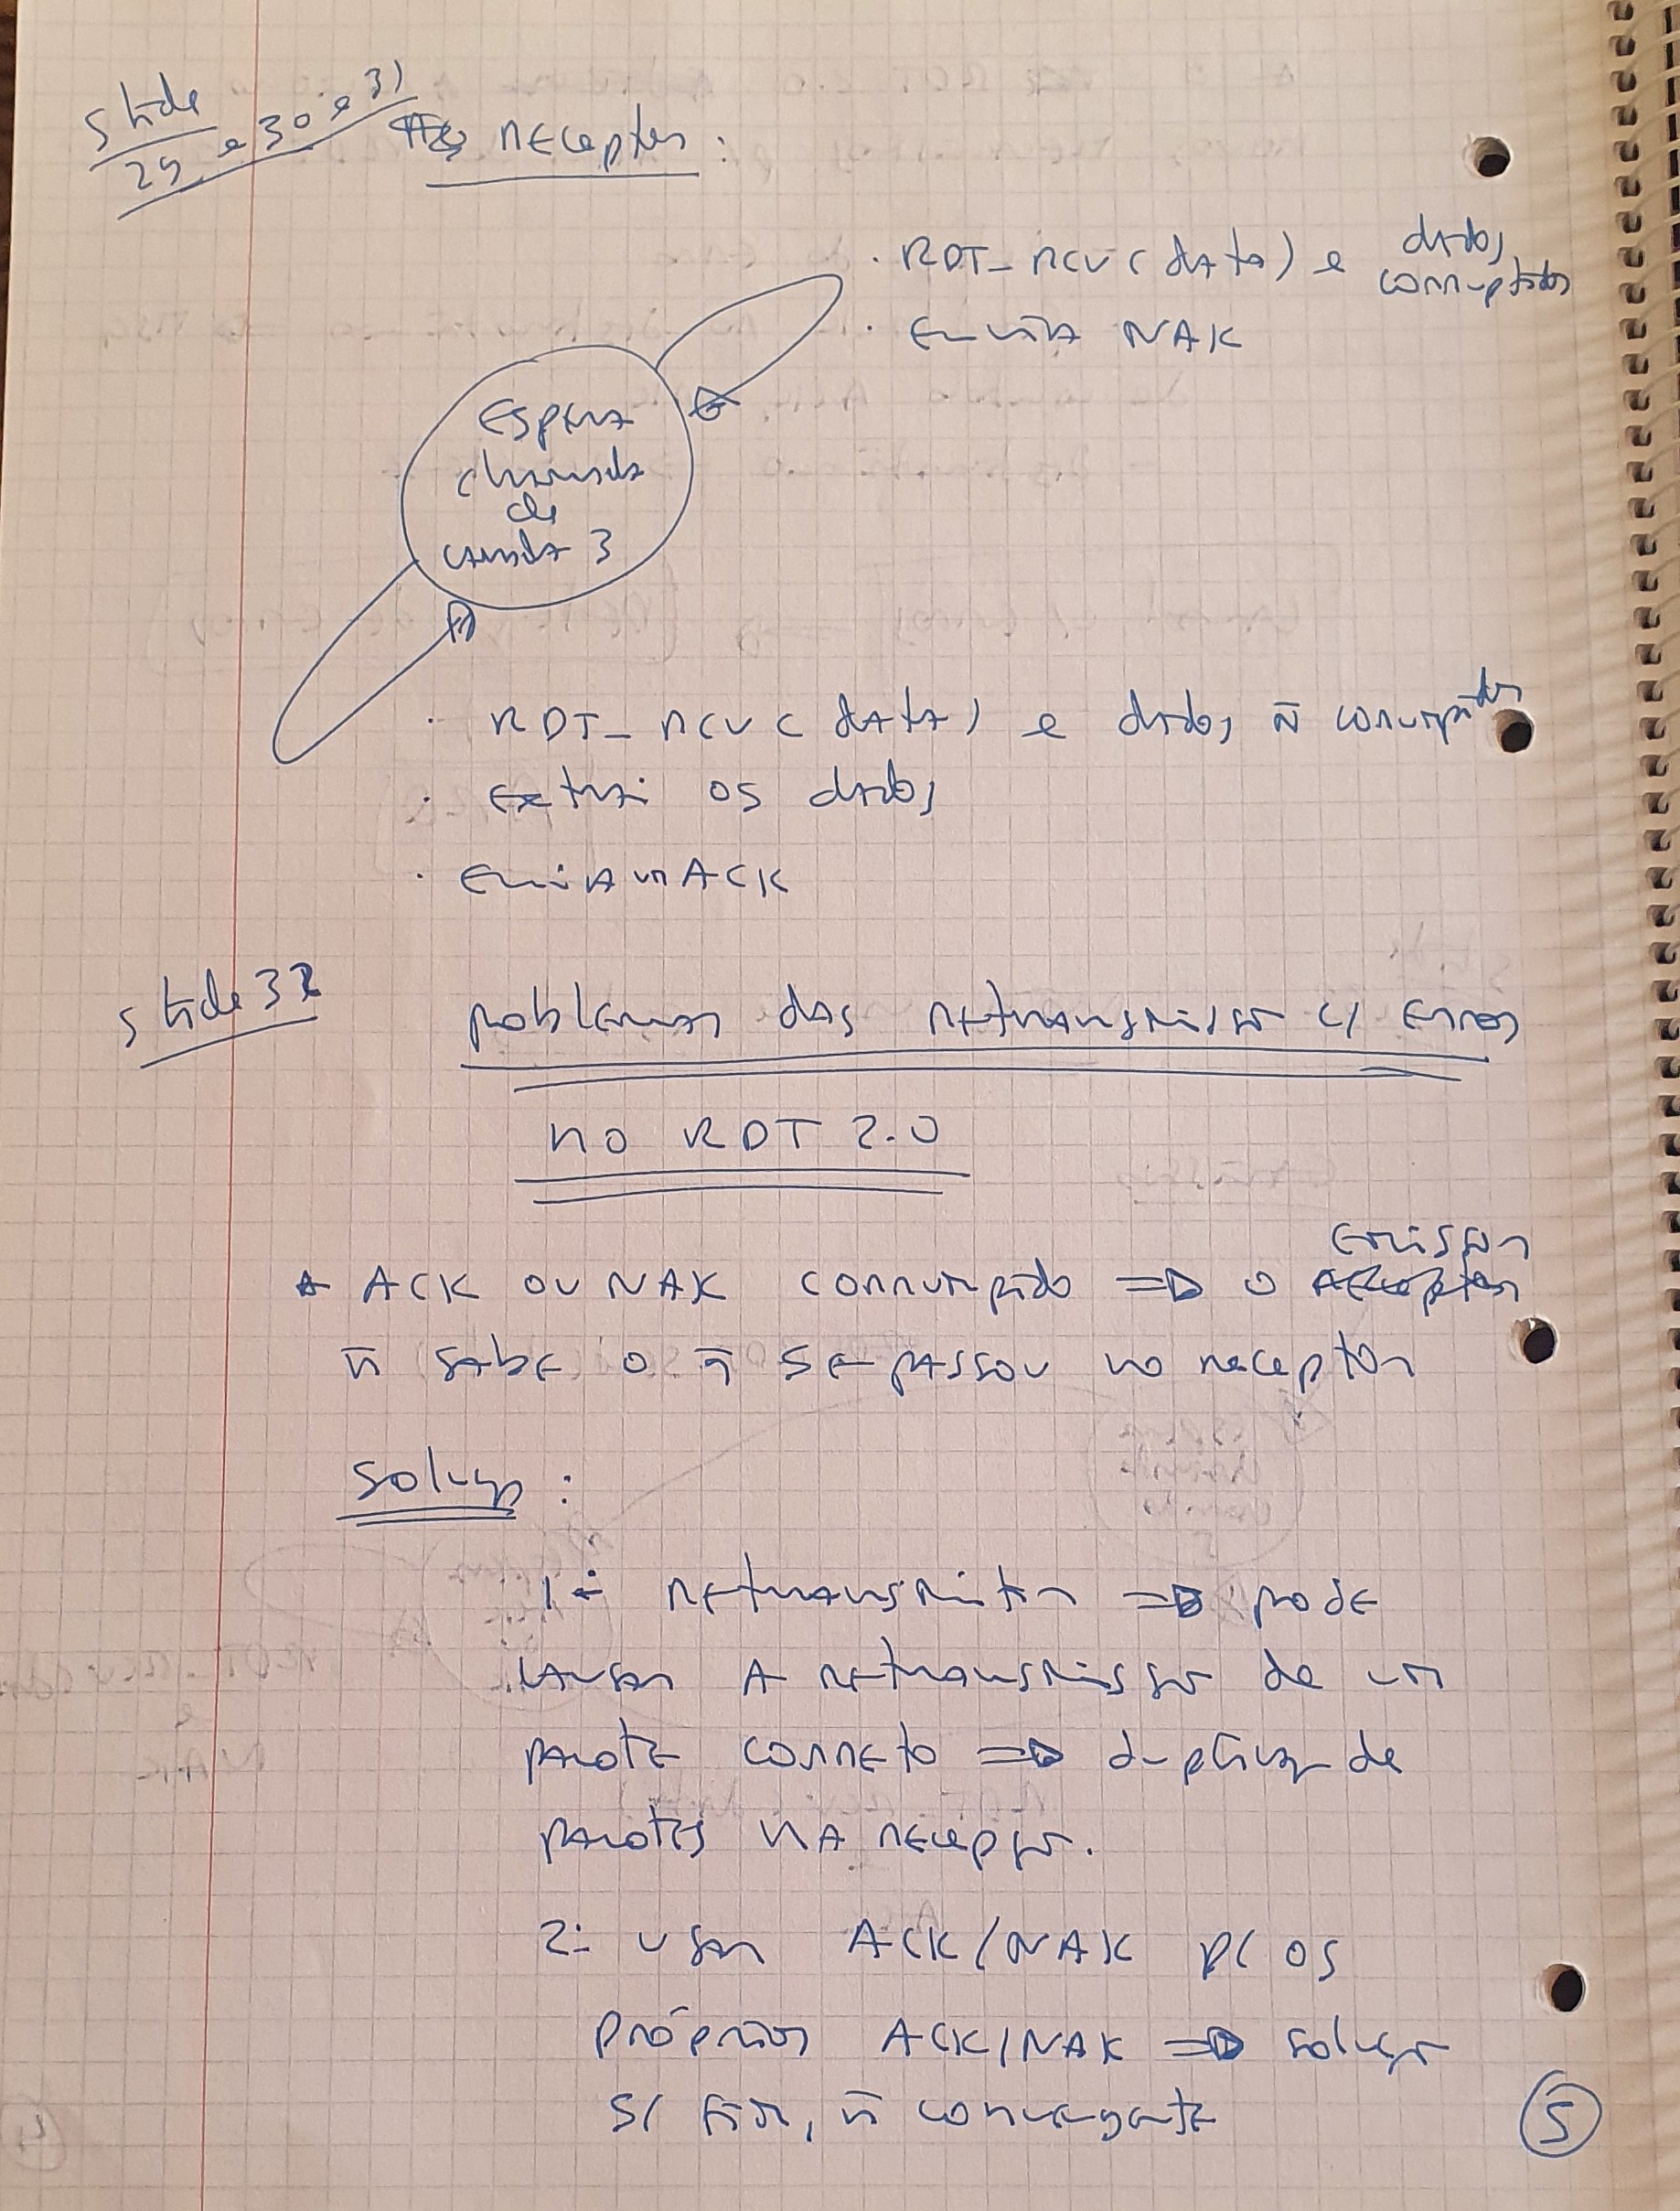 slide
29 e 30 e 31
receptor:
· RDT_rcv(data) e dados corruptos
· envia NAK
espera
chamada
de
camada 3
· RDT_rcv(data) e dados ñ corrompidos
· extrai os dados
· envia um ACK
slide 32
problemas das retransmissão c/ erros
no RDT 2.0
emissor
ACK ou NAK corrompido => o
ñ sabe o q se passou no receptor
solução:
1- retransmitir => pode
causar a retransmissão de um
pacote correto => duplicação de
pacotes na recepção.
2- usar ACK/NAK p/ os
próprios ACK/NAK => solução
s/ fim, ñ convergente
5